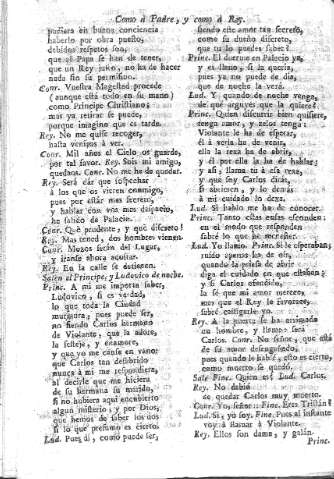 Como à Padre, y como à Rey.
pudiera en buena conciencia
haberlo por obra puestos,
debidos respetos son,
que el Papa se han de tener,
que un Rey justo, no ha de hacer
nada sin su permision.
Cour. Vuestra Magestad procede
(aunque està todo en su mano)
como Principe Christiano;
mas ya retirar se puede,
porque imagino que es tarde.
Rey. No me quise recoger,
hasta veniros à ver.
Con. Mil años el Cielo os guarde,
por tal favor. Rey. Sois mi amigo,
quedaos. Conr. No me he de quedar.
Rey. Serà dàr que sospechar
à los que os vieren conmigo,
pues por estàr mas secreto,
y hablar con vos mas despacio,
he salido de Palacio.
Cour. Què prudente, y què discreto!
Rey. Mas tened, dos hombres vienen.
Conr. Mozos seràn del Lugar,
y iranse ahora acostar.
Rey. En la calle se detienen.
Salen el Principe, y Ludovico de noche.
Princ. A mi me importa saber,
Ludovico, si es verdad,
lo que toda la Ciudad
murmura; pues puede ser,
no siendo Carlos hermano
de Violante, que la adore,
la festeje, y enamore,
y que yo me canse en vano:
que Carlos tan desabrido
nunca à mi me respondiera,
al decirle que me hiciera
de su hermana su marido,
si no hubiera aqui encubierto
algun misterio; y por Dios,
que hemos de saber los dos
si lo que presumo es cierto.
Lud. Pues di, como puede ser,
siendo este amor tan secreto,
como su dueño discreto,
que tu lo puedes saber?
Princ. El duerme en Palacio ya,
y es llano, si la queria,
pues ya no puede de dia,
que de noche la verà.
Lud. Y quando de noche venga,
de què arguyes que la quiere?
Princ. Quien discurrir bien quisiere,
tengo amor, y zelos tenga:
Violante le ha de esperar,
èl à verla ha de venir,
ella la reja ha de abrir,
y èl por ella la ha de hablar;
y assi, llama tù à esa reja,
y que soy Carlos diràs,
si abrieren, y lo demàs
à mi cuidado lo dexa.
Lud. Si hablo me ha de conocer.
Princ. Tanto ostas cosas esconden:
en el modo que responden
echè lo que es menester.
Lud. Yo llamo. Princ. Si le esperaban;
ruido apenas los de oir,
quando la puerta de abrir
diga el cuidado en que estaban?
y si Carlos ofendido,
la sè que mi amor merece,
mas que el Rey le favorece,
sabrè castigarle yo.
Rey. A la puerta se ha arrimado
un hombre, y llamò: serà
Carlos. Conr. No señor, que està
de su amor desengañado,
pues quando le hablè, esto es cierto,
como muerto se quedò.
Sale Princ. Quien es? Lud. Carlos.
Rey. No dudò
de quedar Carlos muy muerto.
Conr. Yo, señor: Princ. Eres Tristàn?
Lud. Si, yo soy. Princ. Pues al instante
voy à llamar à Violante.
Rey. Ellos son dama, y galàn.
Princ.